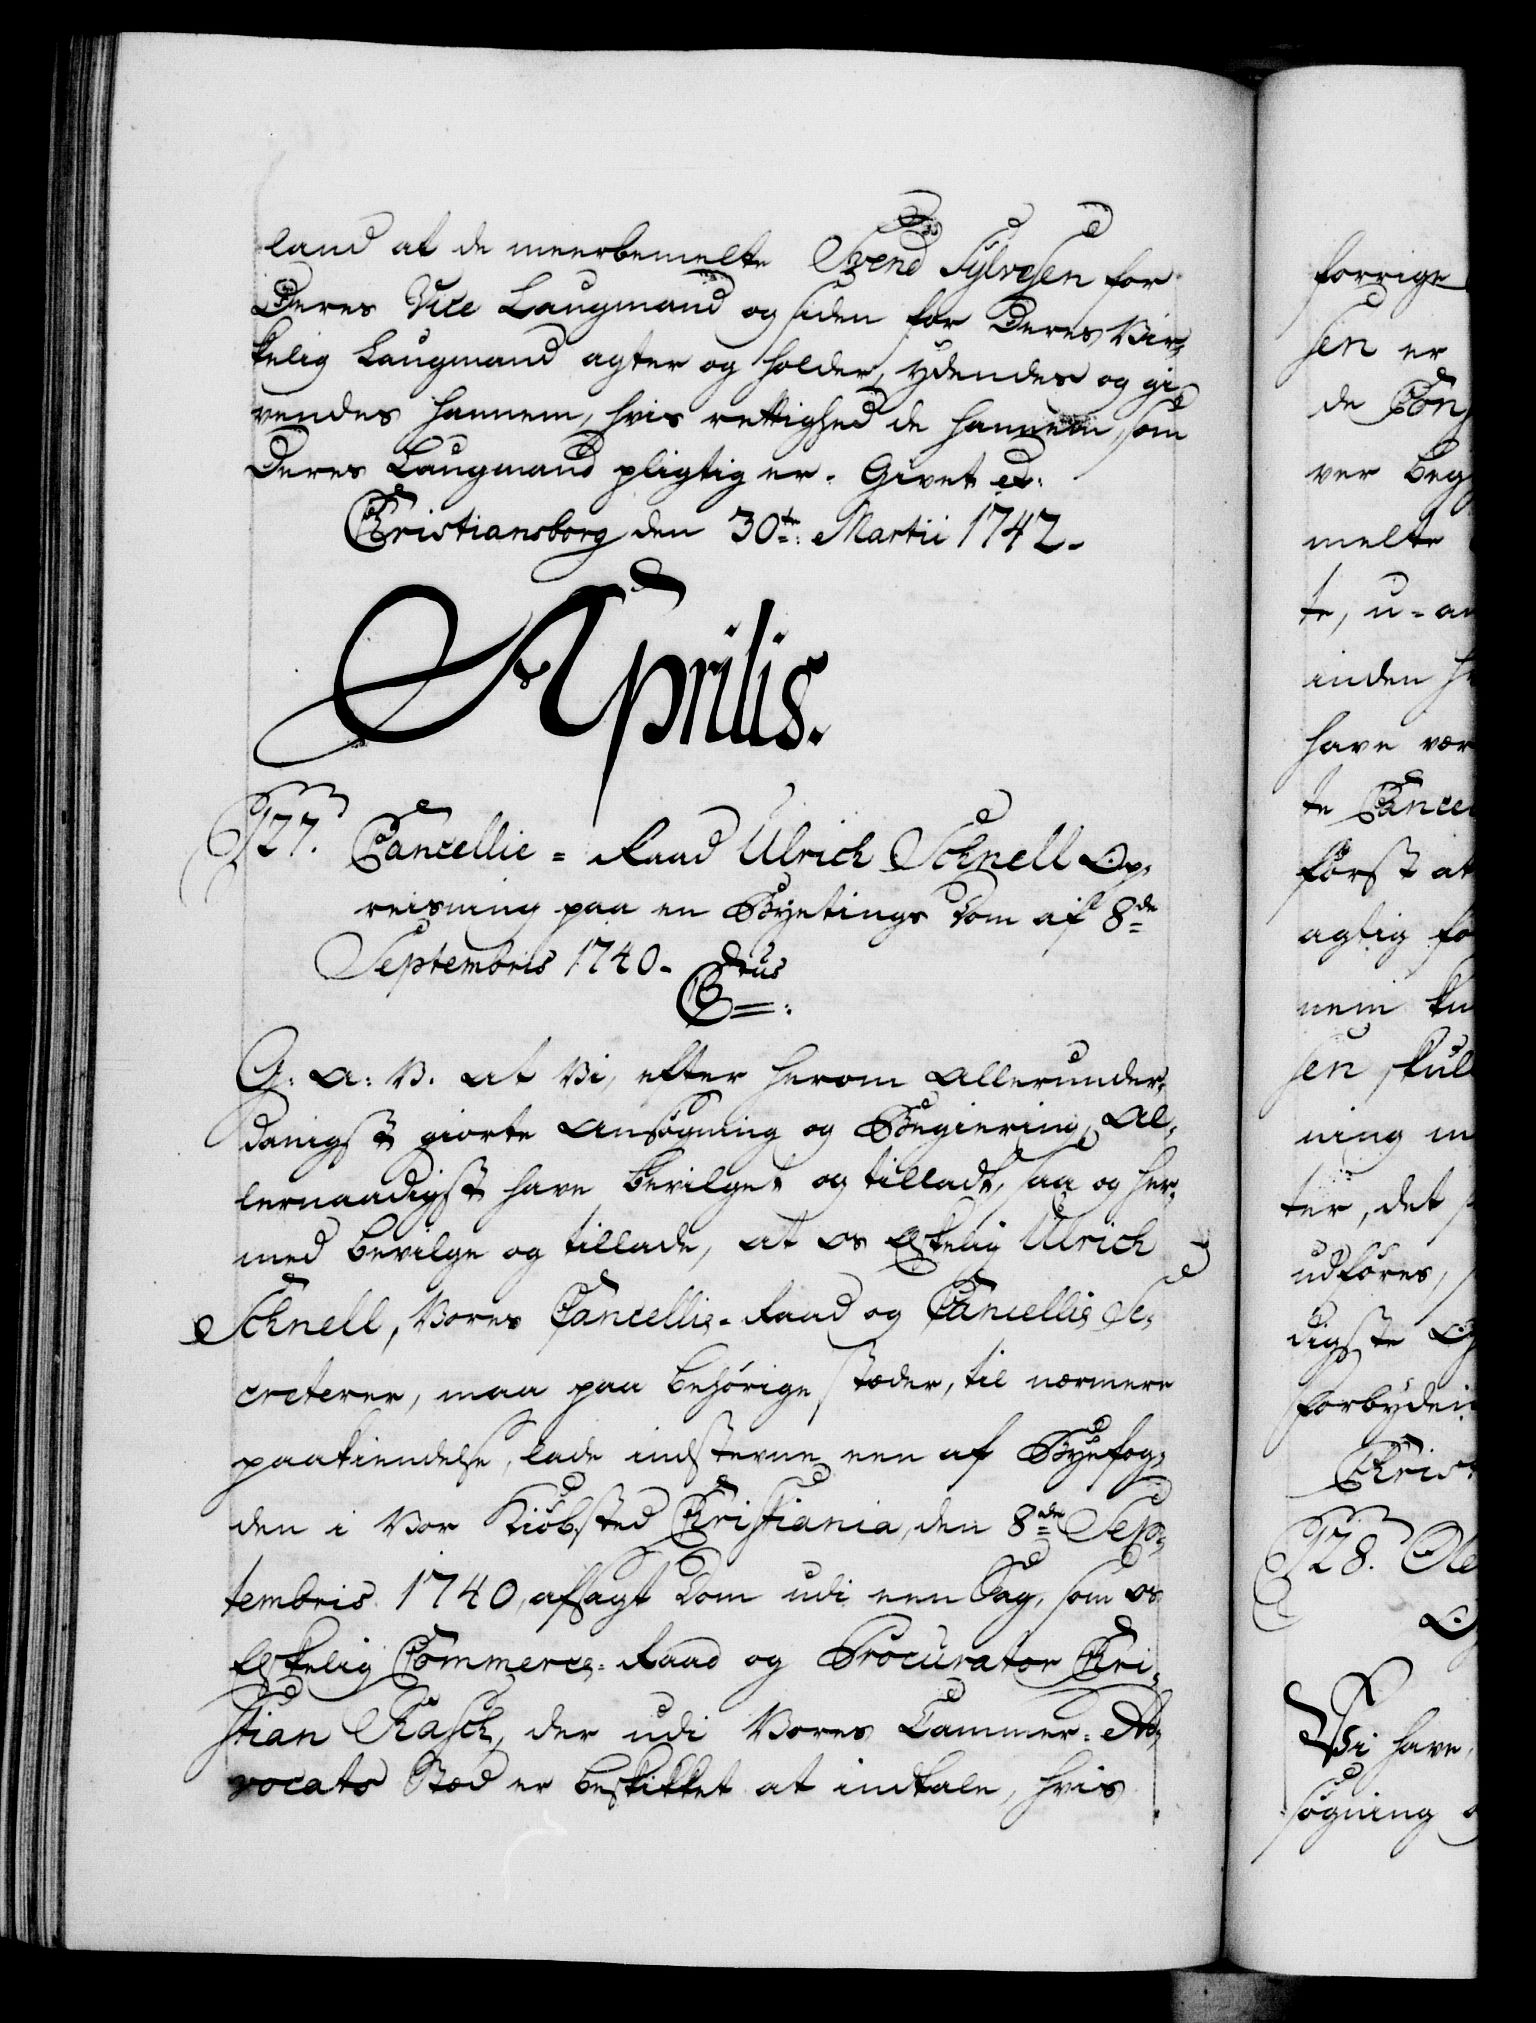 land at de meerbemelte Svend Sylvesen for
Deres Vice Laugmand og siden for Deres Vir-
kelig Laugmand agter og holder, ydendes og gi-
vendes hannem, hvis rettighed de hannem, som
Deres Laugmand pligtig er. Givet etc:
Christiansborg den 30te: Martii 1742.
Aprilis.
127. Cancellie-Raad Ulrich Schnell Op-
reisning paa en Byetings Dom af 8de
Septembris 1740.
G: A: V. at Vi, efter herom allerunder-
danigst giorte Ansøgning og Begiering, Al-
lernaadigst have bevilget og tilladt, saa og her-
med bevilge og tillade, at os Elskelig Ulrich
Schnell, Vores Cancellie-Raad og Cancellie Se-
creterer, maa paa behørige stæder, til nærmere
paakiendelse, lade indstevne een af Byefog-
den i Vor Kiøbsted Christiania, den 8de Sep-
tembris 1740, afsagt Dom udi een Sag, som os
Elskelig Commerce-Raad og Procurator Chri-
stian Rasch, der udi Vores Cammer-Ad-
vocats Stæd er beskikket at indtale, hvis
forrige
sen er
de
ver
melte
te,
inden
have
te
først at
agtig
nem
sen
ning
ter, det
udføres,
digste
128. Ole
Vi have,
søgning